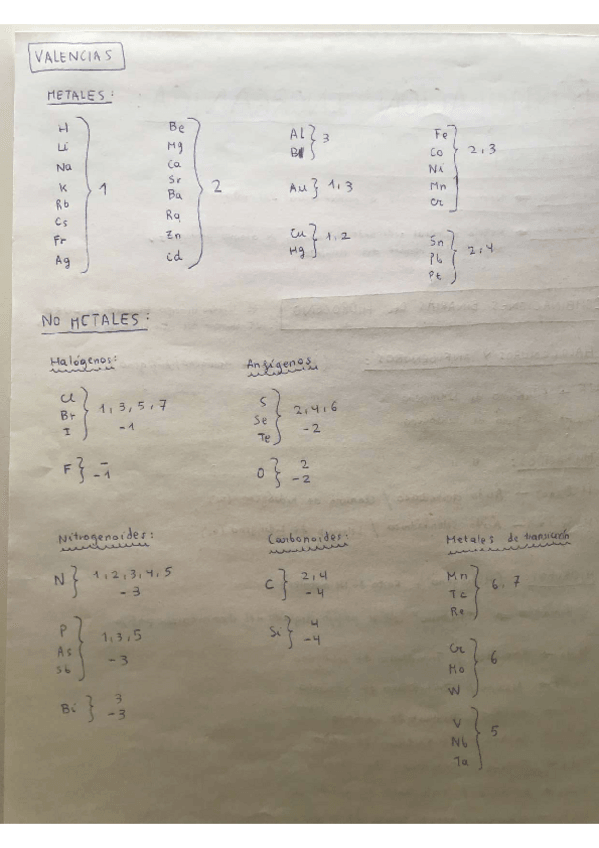 VALENCIAS
METALES:
H
Li
Na
K
Rb
Cs
Fr
Ag
1
Be
Mg
Ca
Sr
Ba
Ra
Zn
Cd
2
Al
3
Au
1, 3
Cu
Hg
1, 2
Fe
Co
Ni
Mn
Cr
2, 3
Sn
Pb
Pt
2, 4
NO METALES:
Halógenos:
Cl
Br
I
1, 3, 5, 7
-1
F
-1
Anfígenos
S
Se
Te
2, 4, 6
-2
O
2
-2
Nitrogenoides:
N
1, 2, 3, 4, 5
-3
P
As
Sb
1, 3, 5
-3
Bi
3
-3
Carbonoides:
C
2, 4
-4
Si
4
-4
Metales de transición
Mn
Tc
Re
6, 7
Cr
Mo
W
6
V
Nb
Ta
5